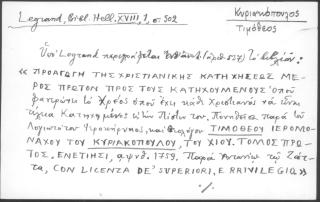 Legrand, Bibl. Hell. XVIII, 1, σ. 502
Κυριακόπουλος
Τιμόθεος
Ὑπὸ Legrand περιγράφεται
« ΠΡΟΑΓΩΓΗ ΤΗΣ ΧΡΙΣΤΙΑΝΙΚΗΣ ΚΑΤΗΧΗΣΕΩΣ ΜΕ
ΡΟΣ ΠΡΩΤΟΝ ΠΡΟΣ ΤΟΥΣ ΚΑΤΗΧΟΥΜΕΝΟΥΣ ὁποῦ
φανερώνει τὸ Χρέος ὁποῦ ἔχει κάθε Χριστιανὸς νὰ εἶναι
Κατηχημένος εἰς τὴν Πίστιν του. Πονηθεῖσα παρὰ τοῦ
Λογιωτάτου Ἱεροκήρυκος, καὶ ΤΙΜΟΘΕΟΥ ΙΕΡΟΜΟ-
ΝΑΧΟΥ ΤΟΥ ΚΥΡΙΑΚΟΠΟΥΛΟΥ, ΤΟΥ ΧΙΟΥ. ΤΟΜΟΣ ΠΡΩ-
ΤΟΣ. ΕΝΕΤΙΗΣΙ, αψνθ. 1759. Παρὰ Ἀντωνίῳ τῷ Ζάτ-
τα, CON LICENZA DE' SUPERIORI, E PRIVILEGIO »
./.